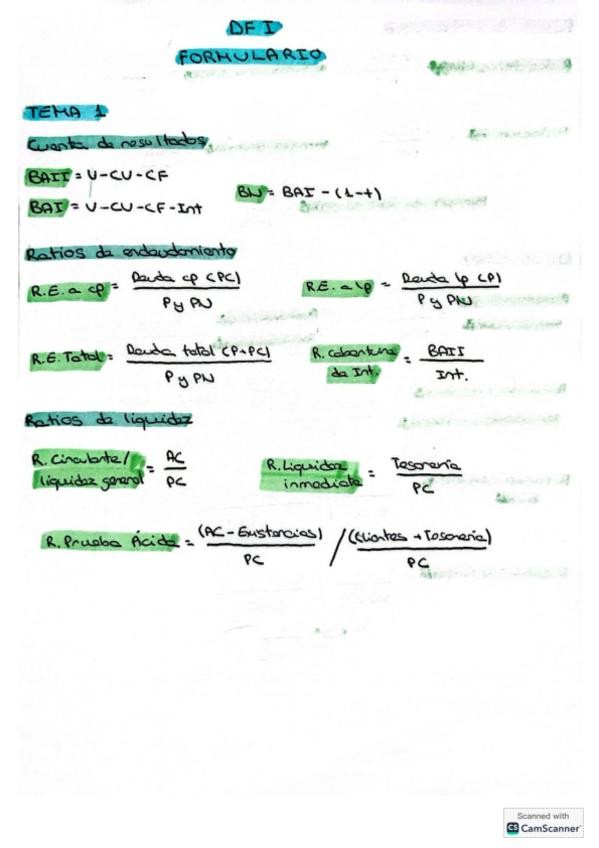 DFI
FORMULARIO
TEMA 1
Cuenta de resultados
BAII = V-CV-CF
BAI = V-CV-CF-Int
BN = BAI - (1-t)
Ratios de endeudamiento
R.E. a cp = Deuda cp (PC) / P y PN
R.E. a lp = Deuda lp (P) / P y PN
R.E. Total = Deuda total (P+PC) / P y PN
R. cobertura de Int. = BAII / Int.
Ratios de liquidez
R. Circulante/ liquidez general = AC / PC
R. Liquidez inmediata = Tesorería / PC
R. Prueba Ácida = (AC - Existencias) / PC / (Clientes + Tesorería) / PC
Scanned with
CS CamScanner